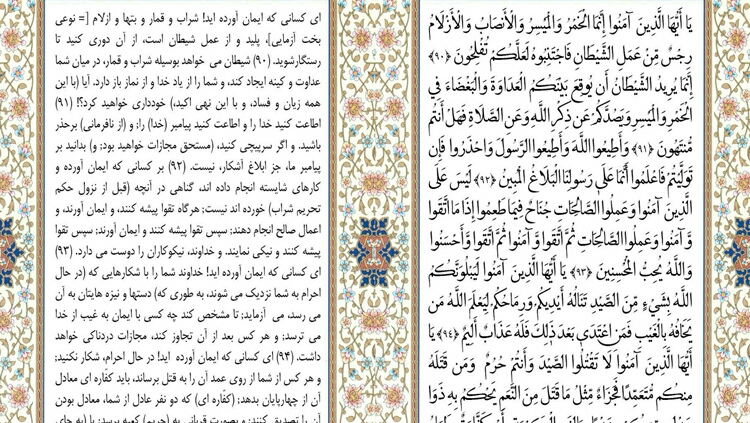 يَا أَيُّهَا الَّذِينَ آمَنُوا إِنَّمَا الْخَمْرُ وَالْمَيْسِرُ وَالْأَنصَابُ وَالْأَزْلَامُ
رِجْسٌ مِّنْ عَمَلِ الشَّيْطَانِ فَاجْتَنِبُوهُ لَعَلَّكُمْ تُفْلِحُونَ ﴿٩٠﴾
إِنَّمَا يُرِيدُ الشَّيْطَانُ أَن يُوقِعَ بَيْنَكُمُ الْعَدَاوَةَ وَالْبَغْضَاءَ فِي
الْخَمْرِ وَالْمَيْسِرِ وَيَصُدَّكُمْ عَن ذِكْرِ اللَّهِ وَعَنِ الصَّلَاةِ فَهَلْ أَنتُم
مُّنتَهُونَ ﴿٩١﴾ وَأَطِيعُوا اللَّهَ وَأَطِيعُوا الرَّسُولَ وَاحْذَرُوا فَإِن
تَوَلَّيْتُمْ فَاعْلَمُوا أَنَّمَا عَلَى رَسُولِنَا الْبَلَاغُ الْمُبِينُ ﴿٩٢﴾ لَيْسَ عَلَى
الَّذِينَ آمَنُوا وَعَمِلُوا الصَّالِحَاتِ جُنَاحٌ فِيمَا طَعِمُوا إِذَا مَا اتَّقَوا
وَّآمَنُوا وَعَمِلُوا الصَّالِحَاتِ ثُمَّ اتَّقَوا وَّآمَنُوا ثُمَّ اتَّقَوا وَّأَحْسَنُوا
وَاللَّهُ يُحِبُّ الْمُحْسِنِينَ ﴿٩٣﴾ يَا أَيُّهَا الَّذِينَ آمَنُوا لَيَبْلُوَنَّكُمُ
اللَّهُ بِشَيْءٍ مِّنَ الصَّيْدِ تَنَالُهُ أَيْدِيكُمْ وَرِمَاحُكُمْ لِيَعْلَمَ اللَّهُ مَن
يَخَافُهُ بِالْغَيْبِ فَمَنِ اعْتَدَى بَعْدَ ذَلِكَ فَلَهُ عَذَابٌ أَلِيمٌ ﴿٩٤﴾ يَا
أَيُّهَا الَّذِينَ آمَنُوا لَا تَقْتُلُوا الصَّيْدَ وَأَنتُمْ حُرُمٌ وَمَن قَتَلَهُ
مِنكُم مُّتَعَمِّدًا فَجَزَاءٌ مِّثْلُ مَا قَتَلَ مِنَ النَّعَمِ يَحْكُمُ بِهِ ذَوَا
ای کسانی که ایمان آورده اید! شراب و قمار و بتها و ازلام [= نوعی
بخت آزمایی]، پلید و از عمل شیطان است، از آن دوری کنید تا
رستگارشوید. (۹۰) شیطان می خواهد بوسیله شراب و قمار، در میان شما
عداوت و کینه ایجاد کند، و شما را از یاد خدا و از نماز باز دارد. آیا (با این
همه زیان و فساد، و با این نهی اکید،) خودداری خواهید کرد؟! (۹۱)
اطاعت کنید خدا را و اطاعت کنید پیامبر (خدا) را; و (از نافرمانی) برحذر
باشید. و اگر سرپیچی کنید، (مستحق مجازات خواهید بود; و) بدانید بر
پیامبر ما، جز ابلاغ آشکار، نیست. (۹۲) بر کسانی که ایمان آورده و
کارهای شایسته انجام داده اند، گناهی در آنچه (قبل از نزول حکم
تحریم شراب) خورده اند نیست; هرگاه تقوا پیشه کنند، و ایمان آورند، و
اعمال صالح انجام دهند; سپس تقوا پیشه کنند و ایمان آورند; سپس تقوا
پیشه کنند و نیکی نمایند. و خداوند، نیکوکاران را دوست می دارد. (۹۳)
ای کسانی که ایمان آورده اید! خداوند شما را با شکارهایی که (در حال
احرام به شما نزدیک می شوند، به طوری که) دستها و نیزه هایتان به آن
می رسد، می آزماید; تا مشخص کند چه کسی با ایمان به غیب از خدا
می ترسد; و هر کس بعد از آن تجاوز کند، مجازات دردناکی خواهد
داشت. (۹۴) ای کسانی که ایمان آورده اید! در حال احرام، شکار نکنید;
و هر کس از شما از روی عمد آن را به قتل برساند، باید کفّاره ای معادل
از چهارپایان بدهد; (کفّاره ای) که دو نفر عادل از شما، معادل بودن
آن را تصدیق کنند; و بصورت قربانی به (حریم) کعبه برسد; یا (به جای